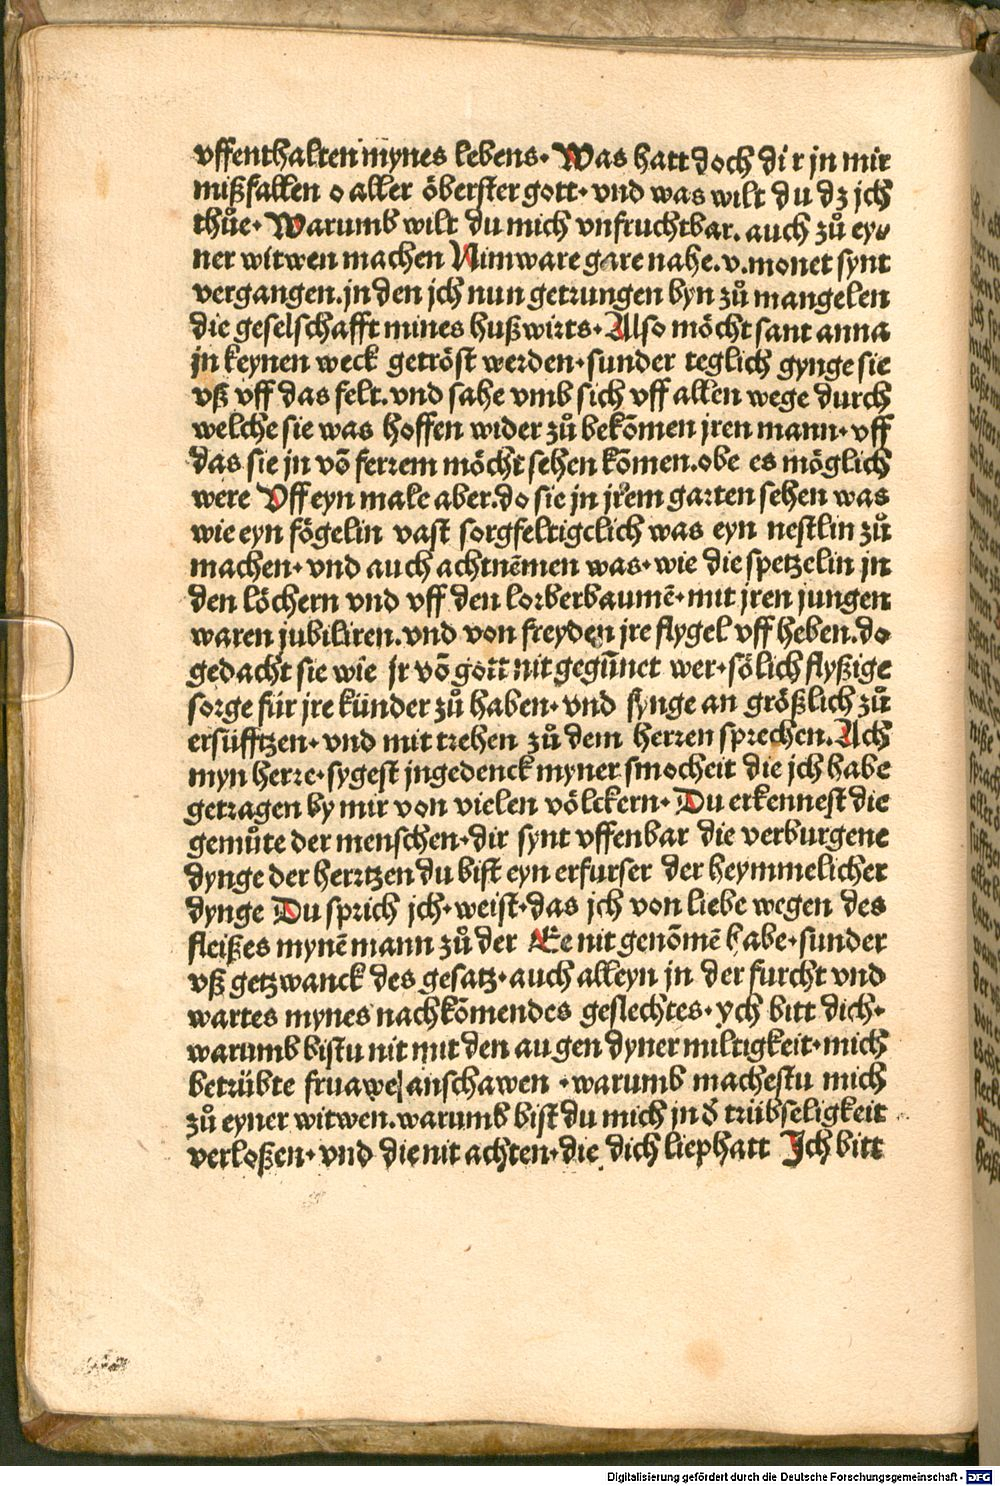 vffenthalten mynes lebens. Was hatt doch dir jn mir
mißfallen o aller öberster gott. vnd was wilt du dz jch
thůe. Warumb wilt du mich vnfruchtbar. auch zů ey⸗
ner witwen machen Nimware gare nahe. v. monet synt
vergangen. jn den jch nun getrungen byn zů mangelen
die geselschafft mines huß wirts. Also möcht sant anna
jn keynen weck getröst werden. sunder teglich gynge sie
vß vff das felt. vnd sahe vmb sich vff allen wege durch
welche sie was hoffen wider zů bekōmen jren mann. vff
das sie jn vō ferrem möcht sehen kōmen. obe es möglich
were Vff eyn male aber. do sie jn jrem garten sehen was
wie eyn fögelin vast sorgfeltigclich was eyn nestlin zů
machen. vnd auch achtnēmen was. wie die spetzelin jn
den löchern vnd vff den lorberbaumē. mit jren jungen
waren jubiliren. vnd von freyden jre flygel vff heben. do
gedacht sie wie jr vō gott nit gegūnet wer. sölich flyßige
sorge für jre künder zů haben. vnd fynge an größlich zů
ersüfftzen. vnd mit trehen zů dem herren sprechen. Ach
myn herre. sygest jngedenck myner smocheit die jch habe
getragen by mir von vielen völckern. Du erkennest die
gemůte der menschen. dir synt vffenbar die verburgene
dynge der herrtzen du bist eyn erfurser der heymmelicher
dynge Du sprich jch. weist. das jch von liebe wegen des
fleißes mynē mann zů der Ee nit genōmē habe. sunder
vß getzwanck des gesatz. auch alleyn jn der furcht vnd
wartes mynes nachkōmendes geslechtes. ych bitt dich.
warumb bistu nit mit den augen dyner miltigkeit. mich
betrübte fruawe anschawen. warumb machestu mich
zů eyner witwen. warumb bist du mich jn đ trübseligkeit
verloßen. vnd die nit achten. die dich liephatt Jch bitt
Digitalisierung gefördert durch die Deutsche Forschungsgemeinschaft - DFG